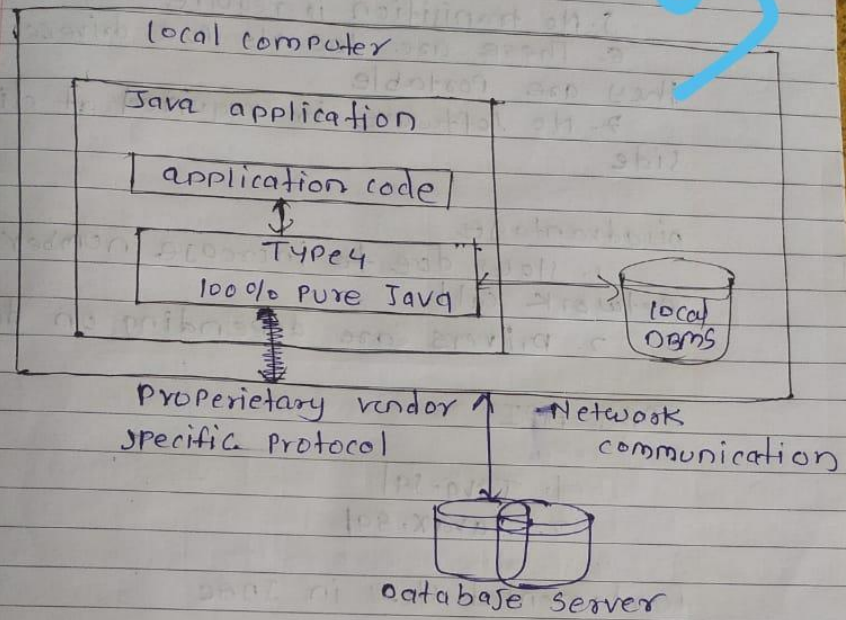 local computer
Java application
application code
Type4
100% Pure Java
local
DBMS
Properietary vendor
specific Protocol
Network
communication
Database server